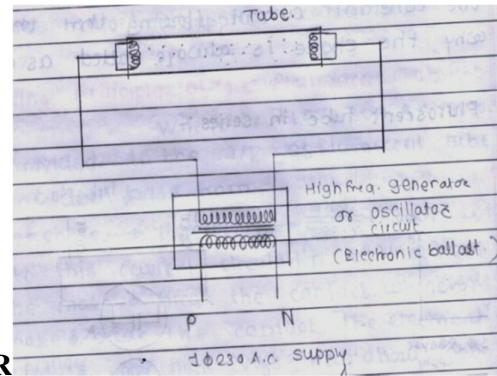 Tube.
High freq. generator
or oscillator
circuit
(Electronic ballast)
P N
1ϕ230 A.C. supply
R